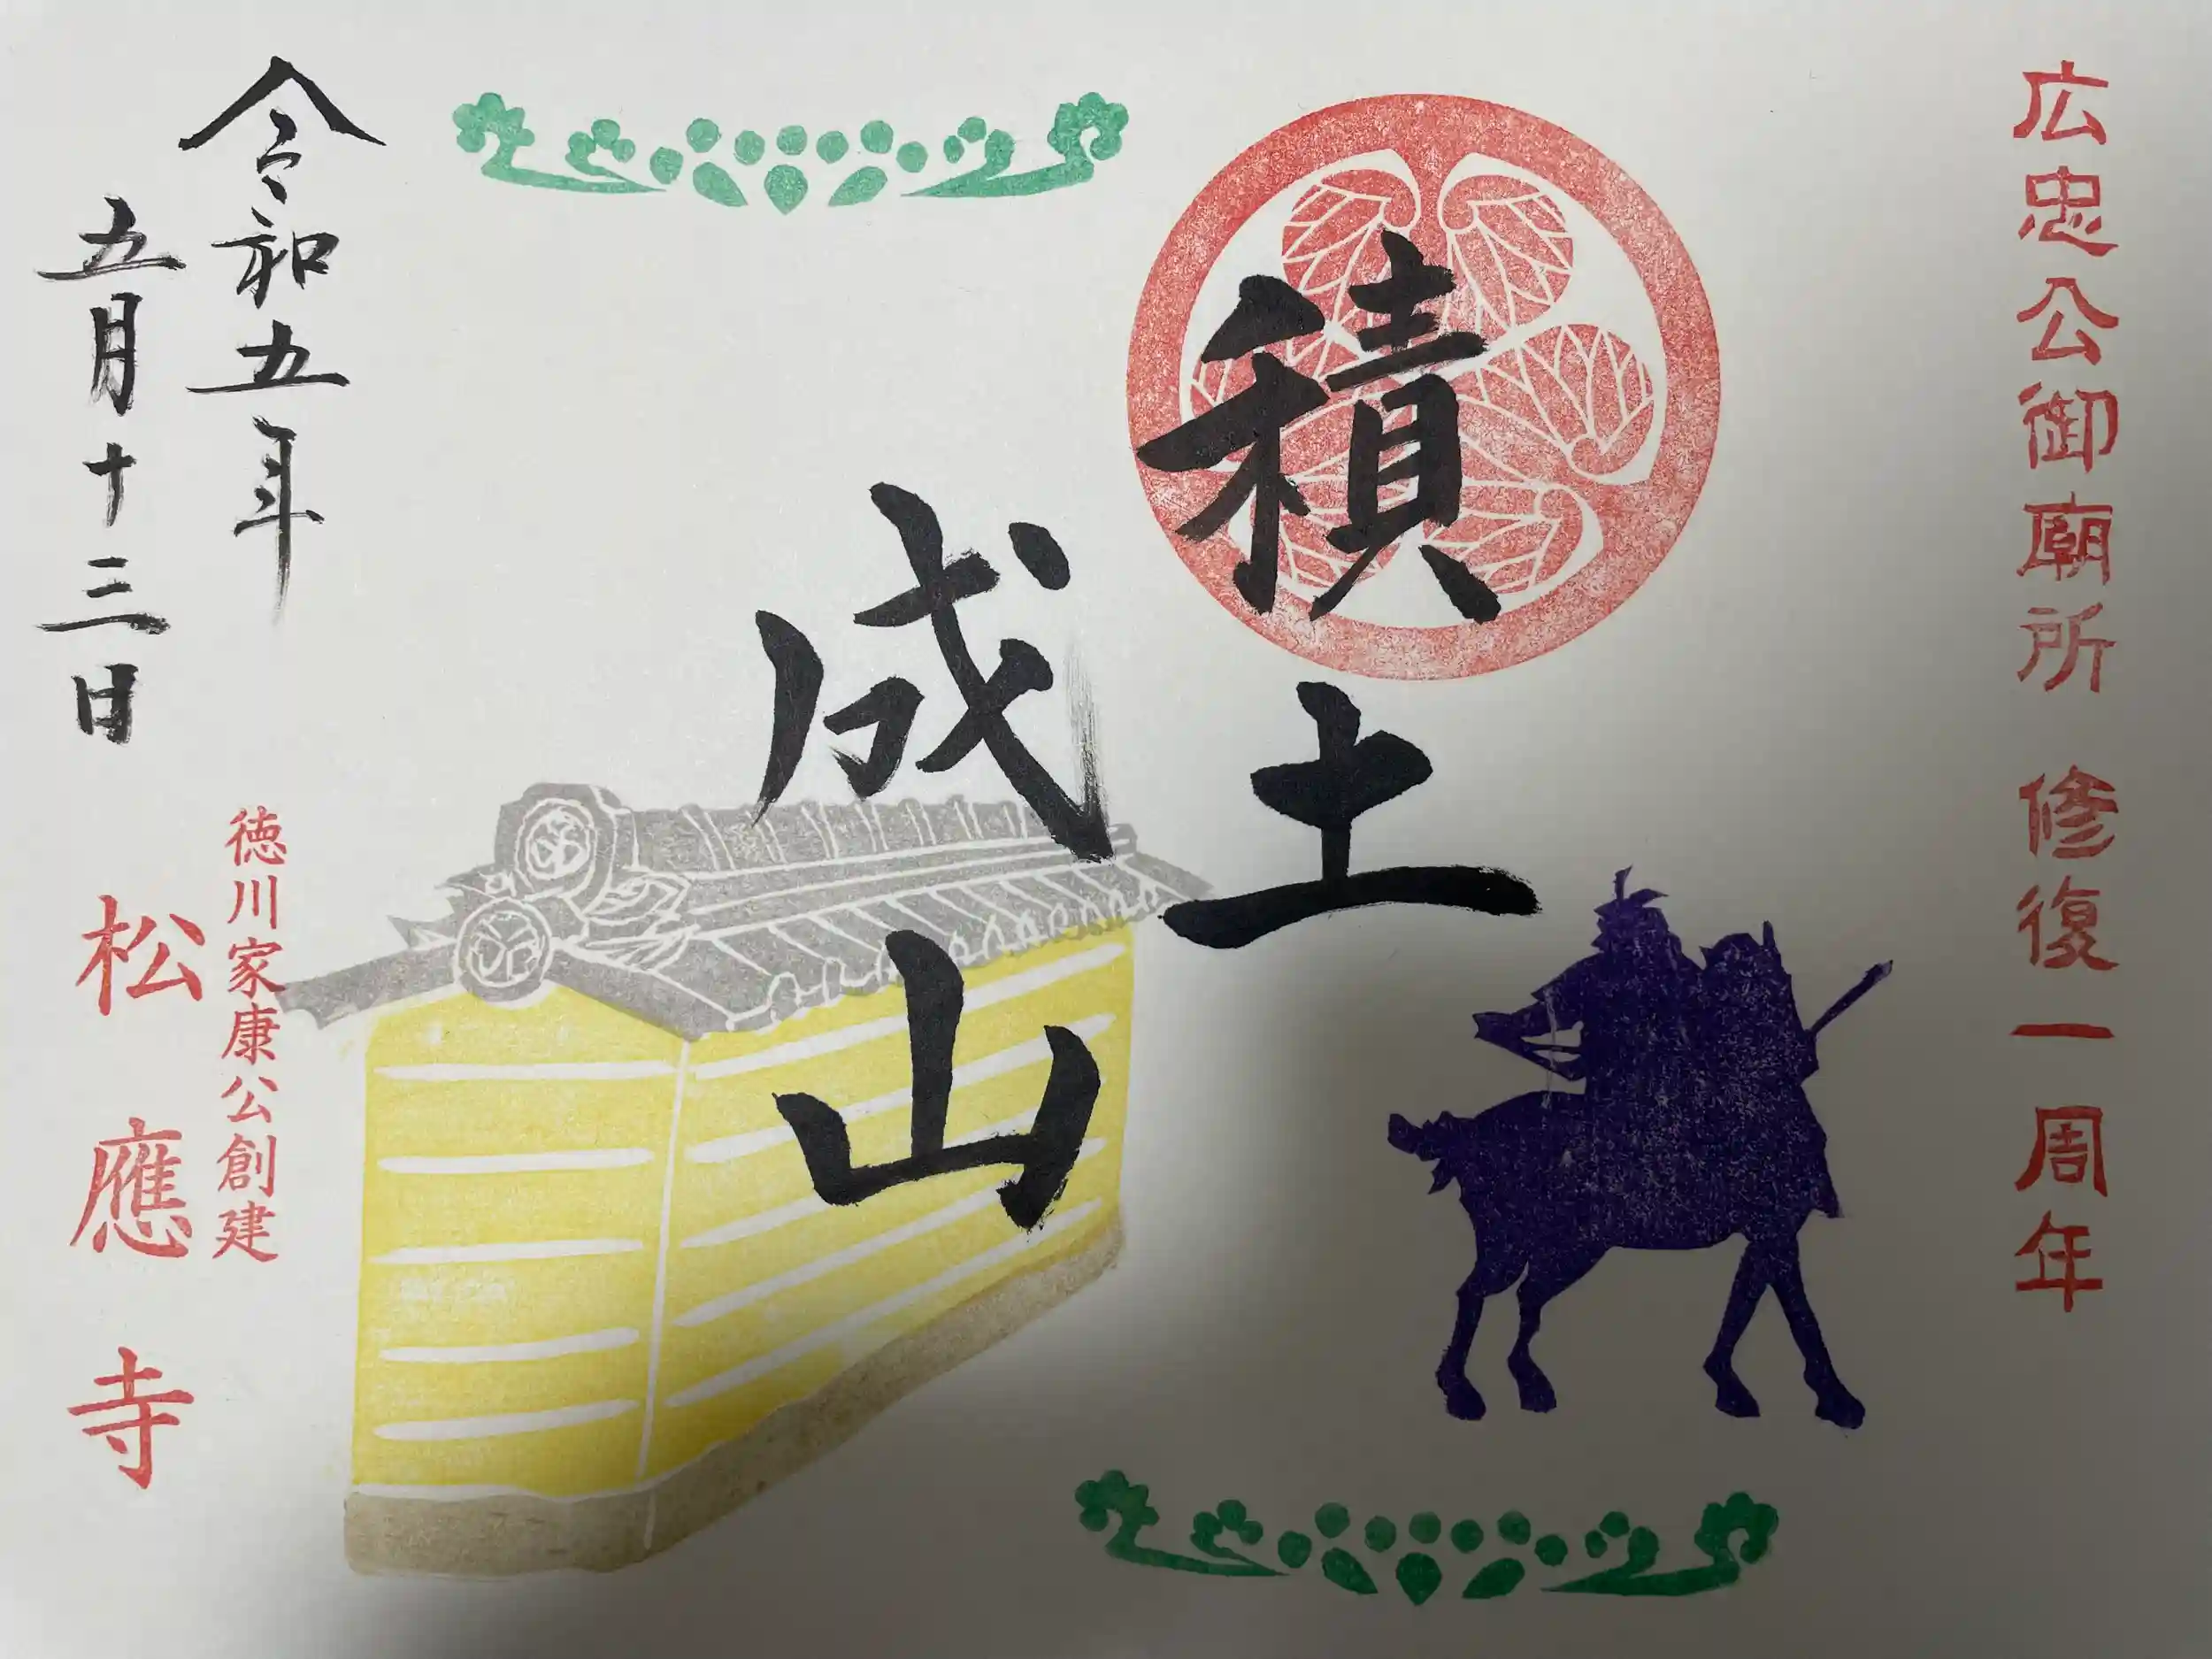 広忠公御廟所 修復一周年
積土
成山
令和五年
五月十三日
徳川家康公創建
松應寺